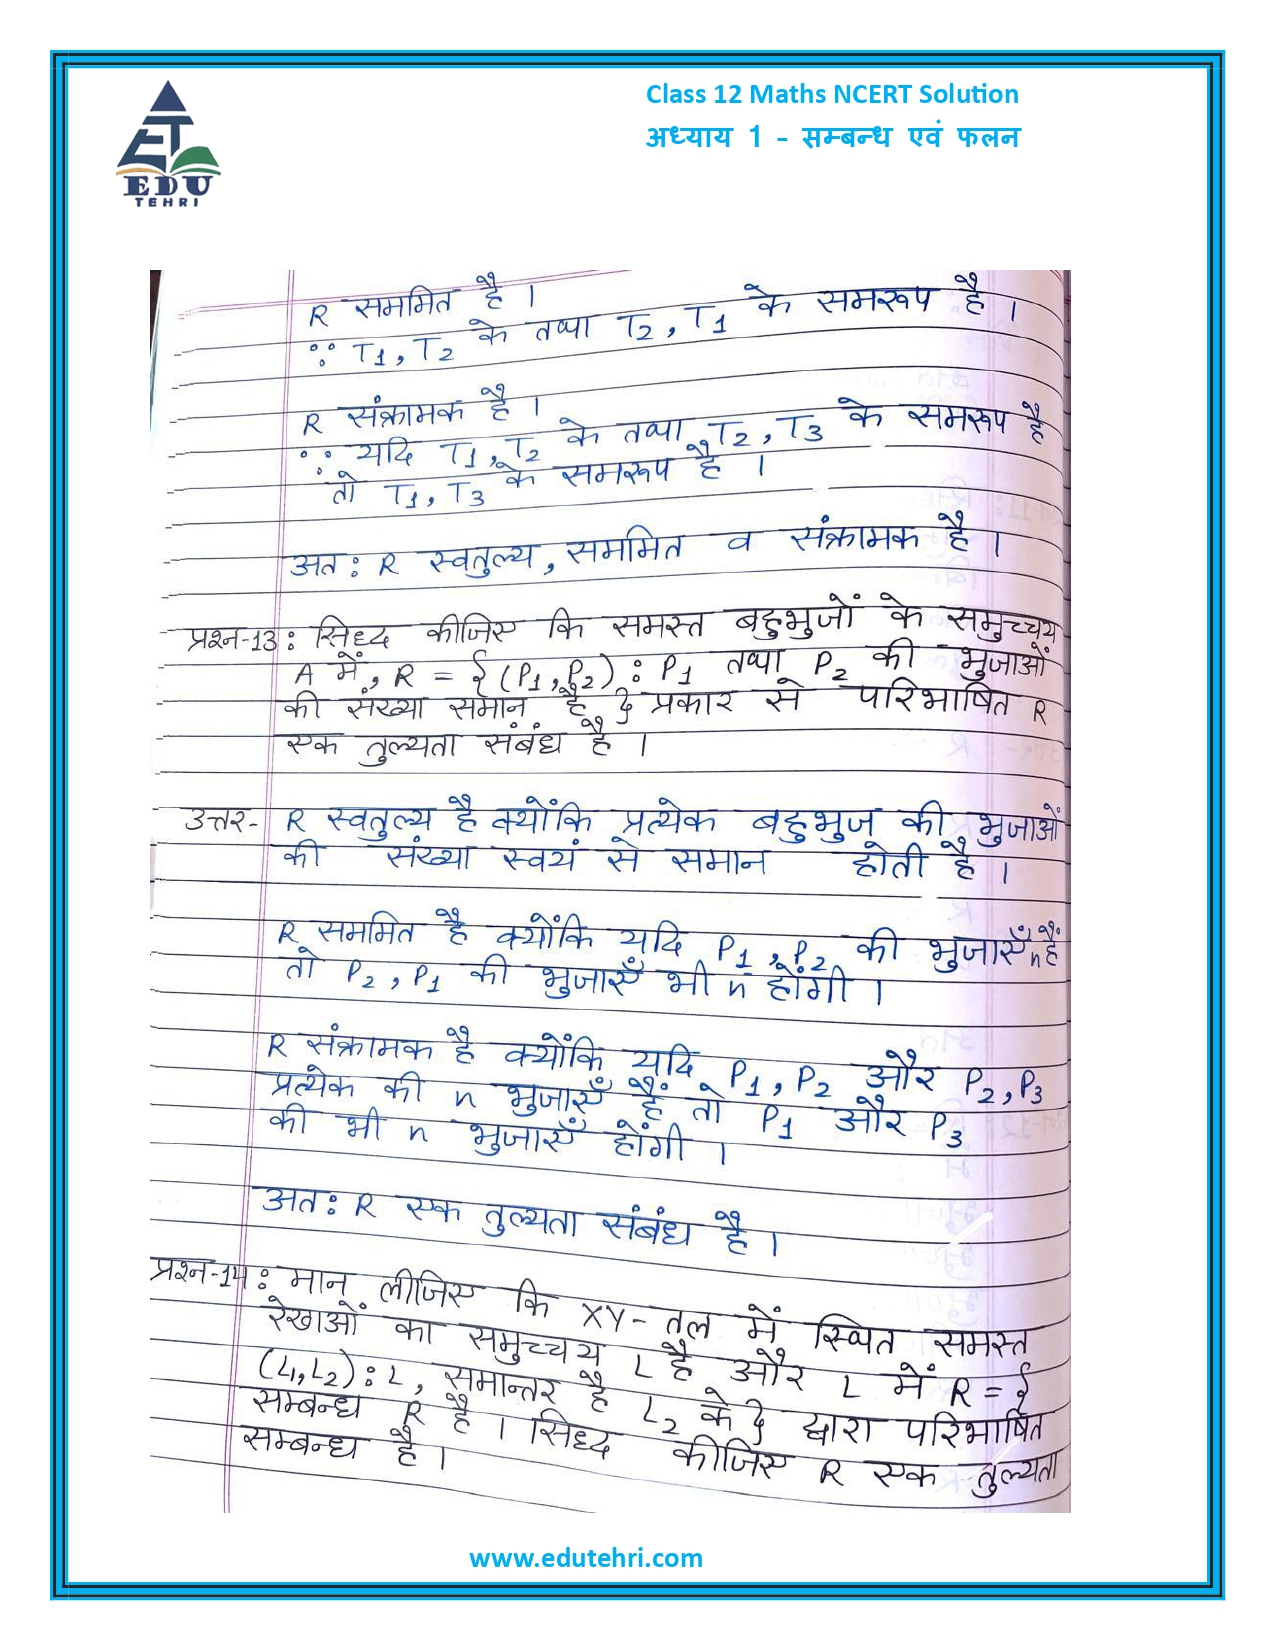 Class 12 Maths NCERT Solution
अध्याय 1 - सम्बन्ध एवं फलन
ET
EDU
TEHRI
R सममित है ।
∵ T1, T2 के तथा T2, T1 के समरूप है ।
R संक्रामक है ।
∵ यदि T1, T2 के तथा T2, T3 के समरूप है
तो T1, T3 के समरूप है ।
अत: R स्वतुल्य, सममित व संक्रामक है ।
प्रश्न-13: सिध्द कीजिए कि समस्त बहुभुजों के समुच्चय
A में, R = {(P1, P2) : P1 तथा P2 की भुजाओं
की संख्या समान है} प्रकार से परिभाषित R
एक तुल्यता संबंध है ।
उत्तर- R स्वतुल्य है क्योंकि प्रत्येक बहुभुज की भुजाओं
की संख्या स्वयं से समान होती है ।
R सममित है क्योंकि यदि P1, P2 की भुजाएँ n हैं
तो P2, P1 की भुजाएँ भी n होंगी ।
R संक्रामक है क्योंकि यदि P1, P2 और P2, P3
प्रत्येक की n भुजाएँ हैं तो P1 और P3
की भी n भुजाएँ होंगी ।
अत: R एक तुल्यता संबंध है ।
प्रश्न-14: मान लीजिए कि XY- तल में स्थित समस्त
रेखाओं का समुच्चय L है और L में R = {
(L1, L2) : L, समान्तर है L2 के} द्वारा परिभाषित
सम्बन्ध R है । सिध्द कीजिए R एक तुल्यता
सम्बन्ध है ।
www.edutehri.com